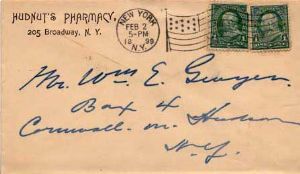 HUDNUT'S PHARMACY,
205 Broadway, N. Y.
NEW YORK
FEB 2
5-PM
1899
N.Y.
Mr. Wm E. Gwyer.
Box 4
Cornwall on Hudson
N.Y.